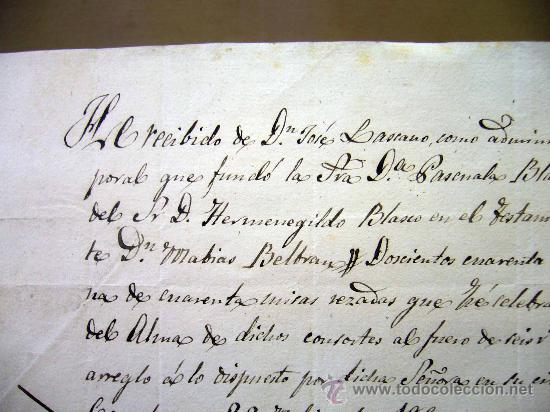 He recibido de D.n José Lascano, como admin
poral que fundó la Sra D.a Pascuala Bla
del Sr D. Hermenegildo Blasco en el Testam
te D.n Matias Beltran Doscientos cuarenta
na de cuarenta misas rezadas que hé celebra
del Alma de dichos consortes al fuero de seis r
arreglo á lo dispuesto por dicha Señora en su
todocoleccion.net